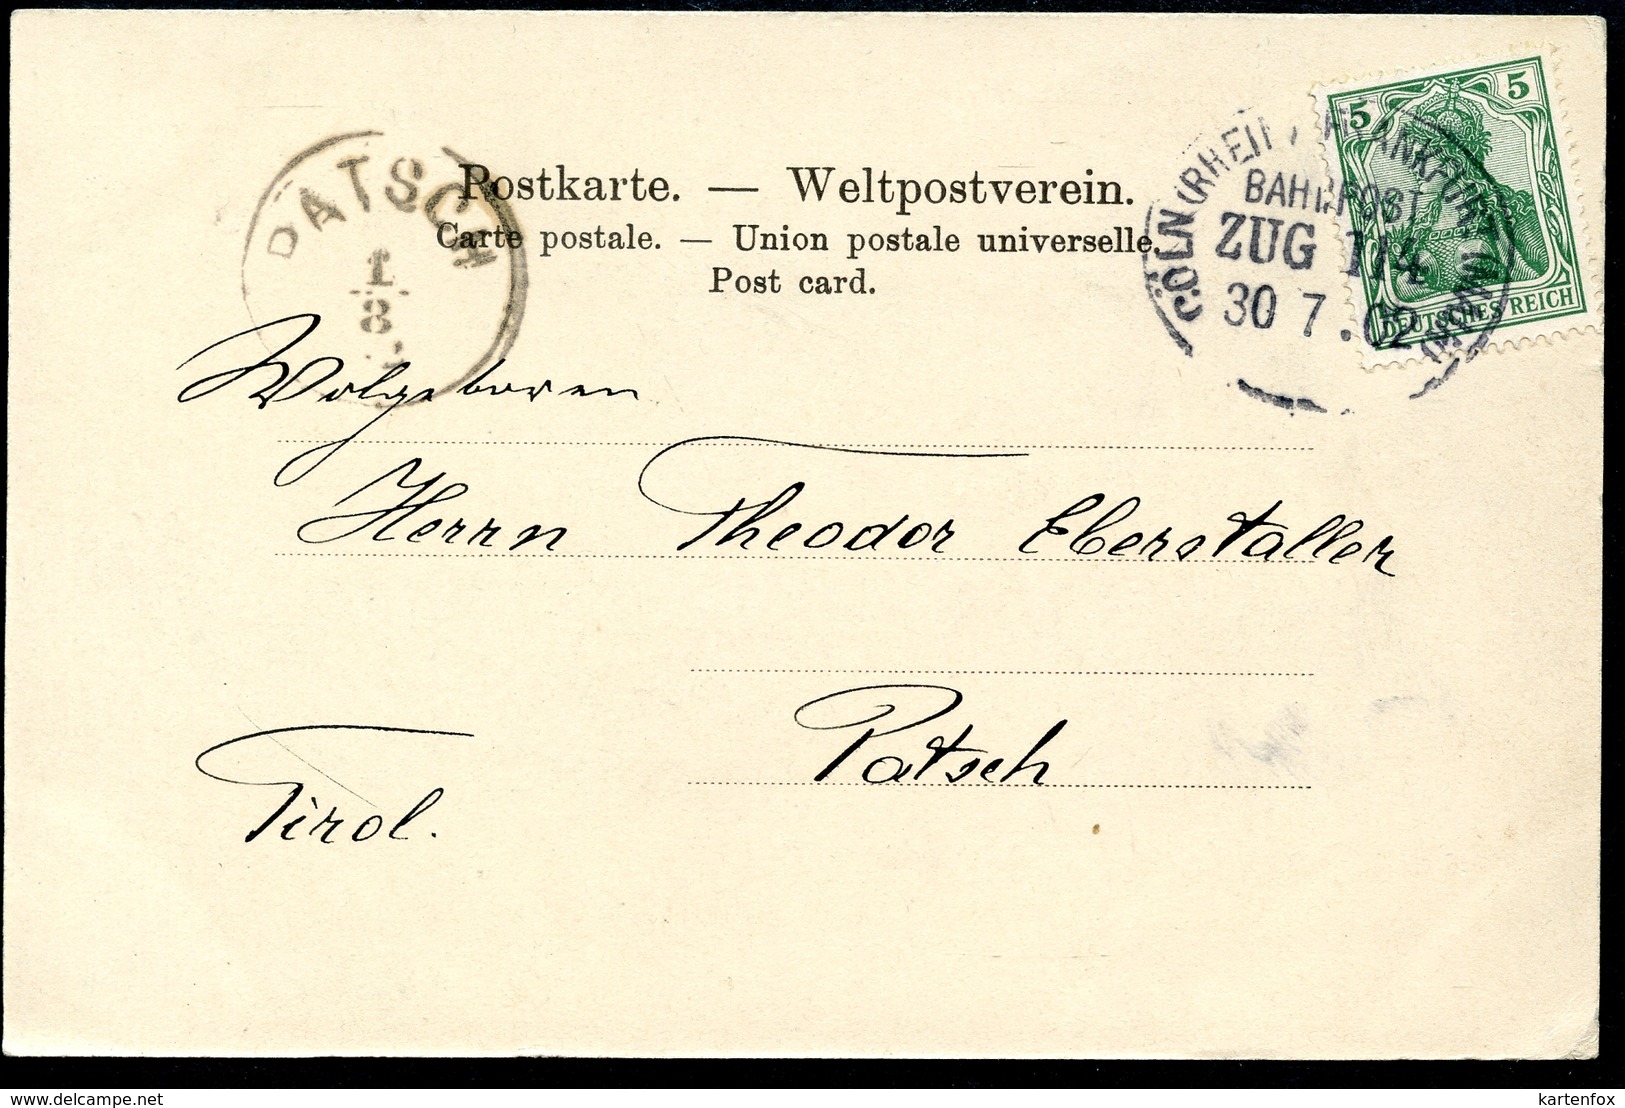 Postkarte. — Weltpostverein.
Carte postale. — Union postale universelle.
Post card.
PATSCH
1
8
CÖLN (RHEIN) FRANKFURT (MAIN)
BAHNPOST
ZUG 114
30 7.02
5 5
DEUTSCHES REICH
Wolgeboren
Herrn Theodor Eberstaller
Patsch
Tirol.
delcampe.net
kartenfox